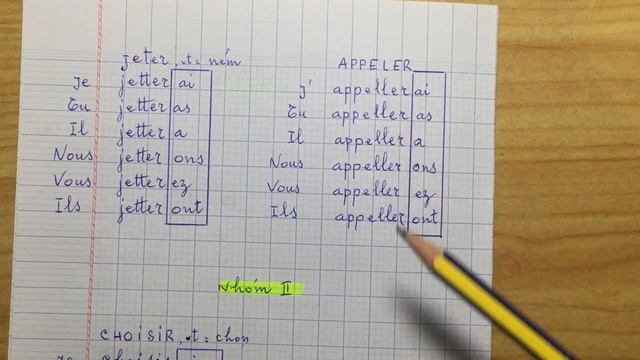 jeter, .t= ném
Je jetter ai
Tu jetter as
Il jetter a
Nous jetter ons
Vous jetter ez
Ils jetter ont
APPELER
J' appeller ai
Tu appeller as
Il appeller a
Nous appeller ons
Vous appeller ez
Ils appeller ont
Nhóm II
CHOISIR, .t= chọn